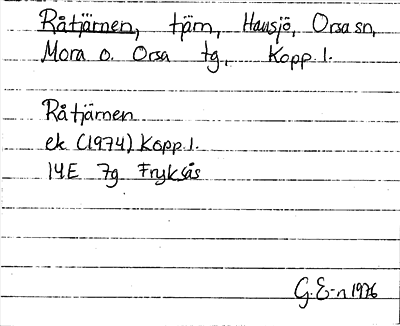 Råtjärnen, tjärn, Hansjö, Orsa sn,
Mora o. Orsa tg, Kopp l.
Råtjärnen
ek (1974) Kopp l.
14E 7g Fryksås
G. E-n 1976